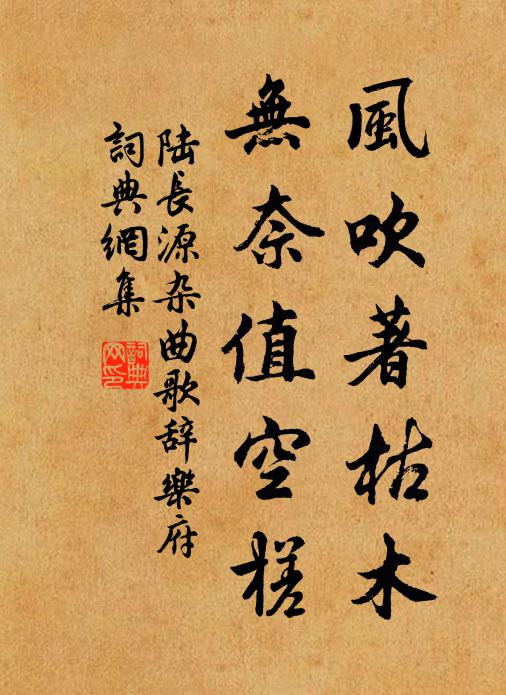 風吹著枯木
無奈值空槎
陸長源杂曲歌辞樂府
詞典網集
詞典
网印